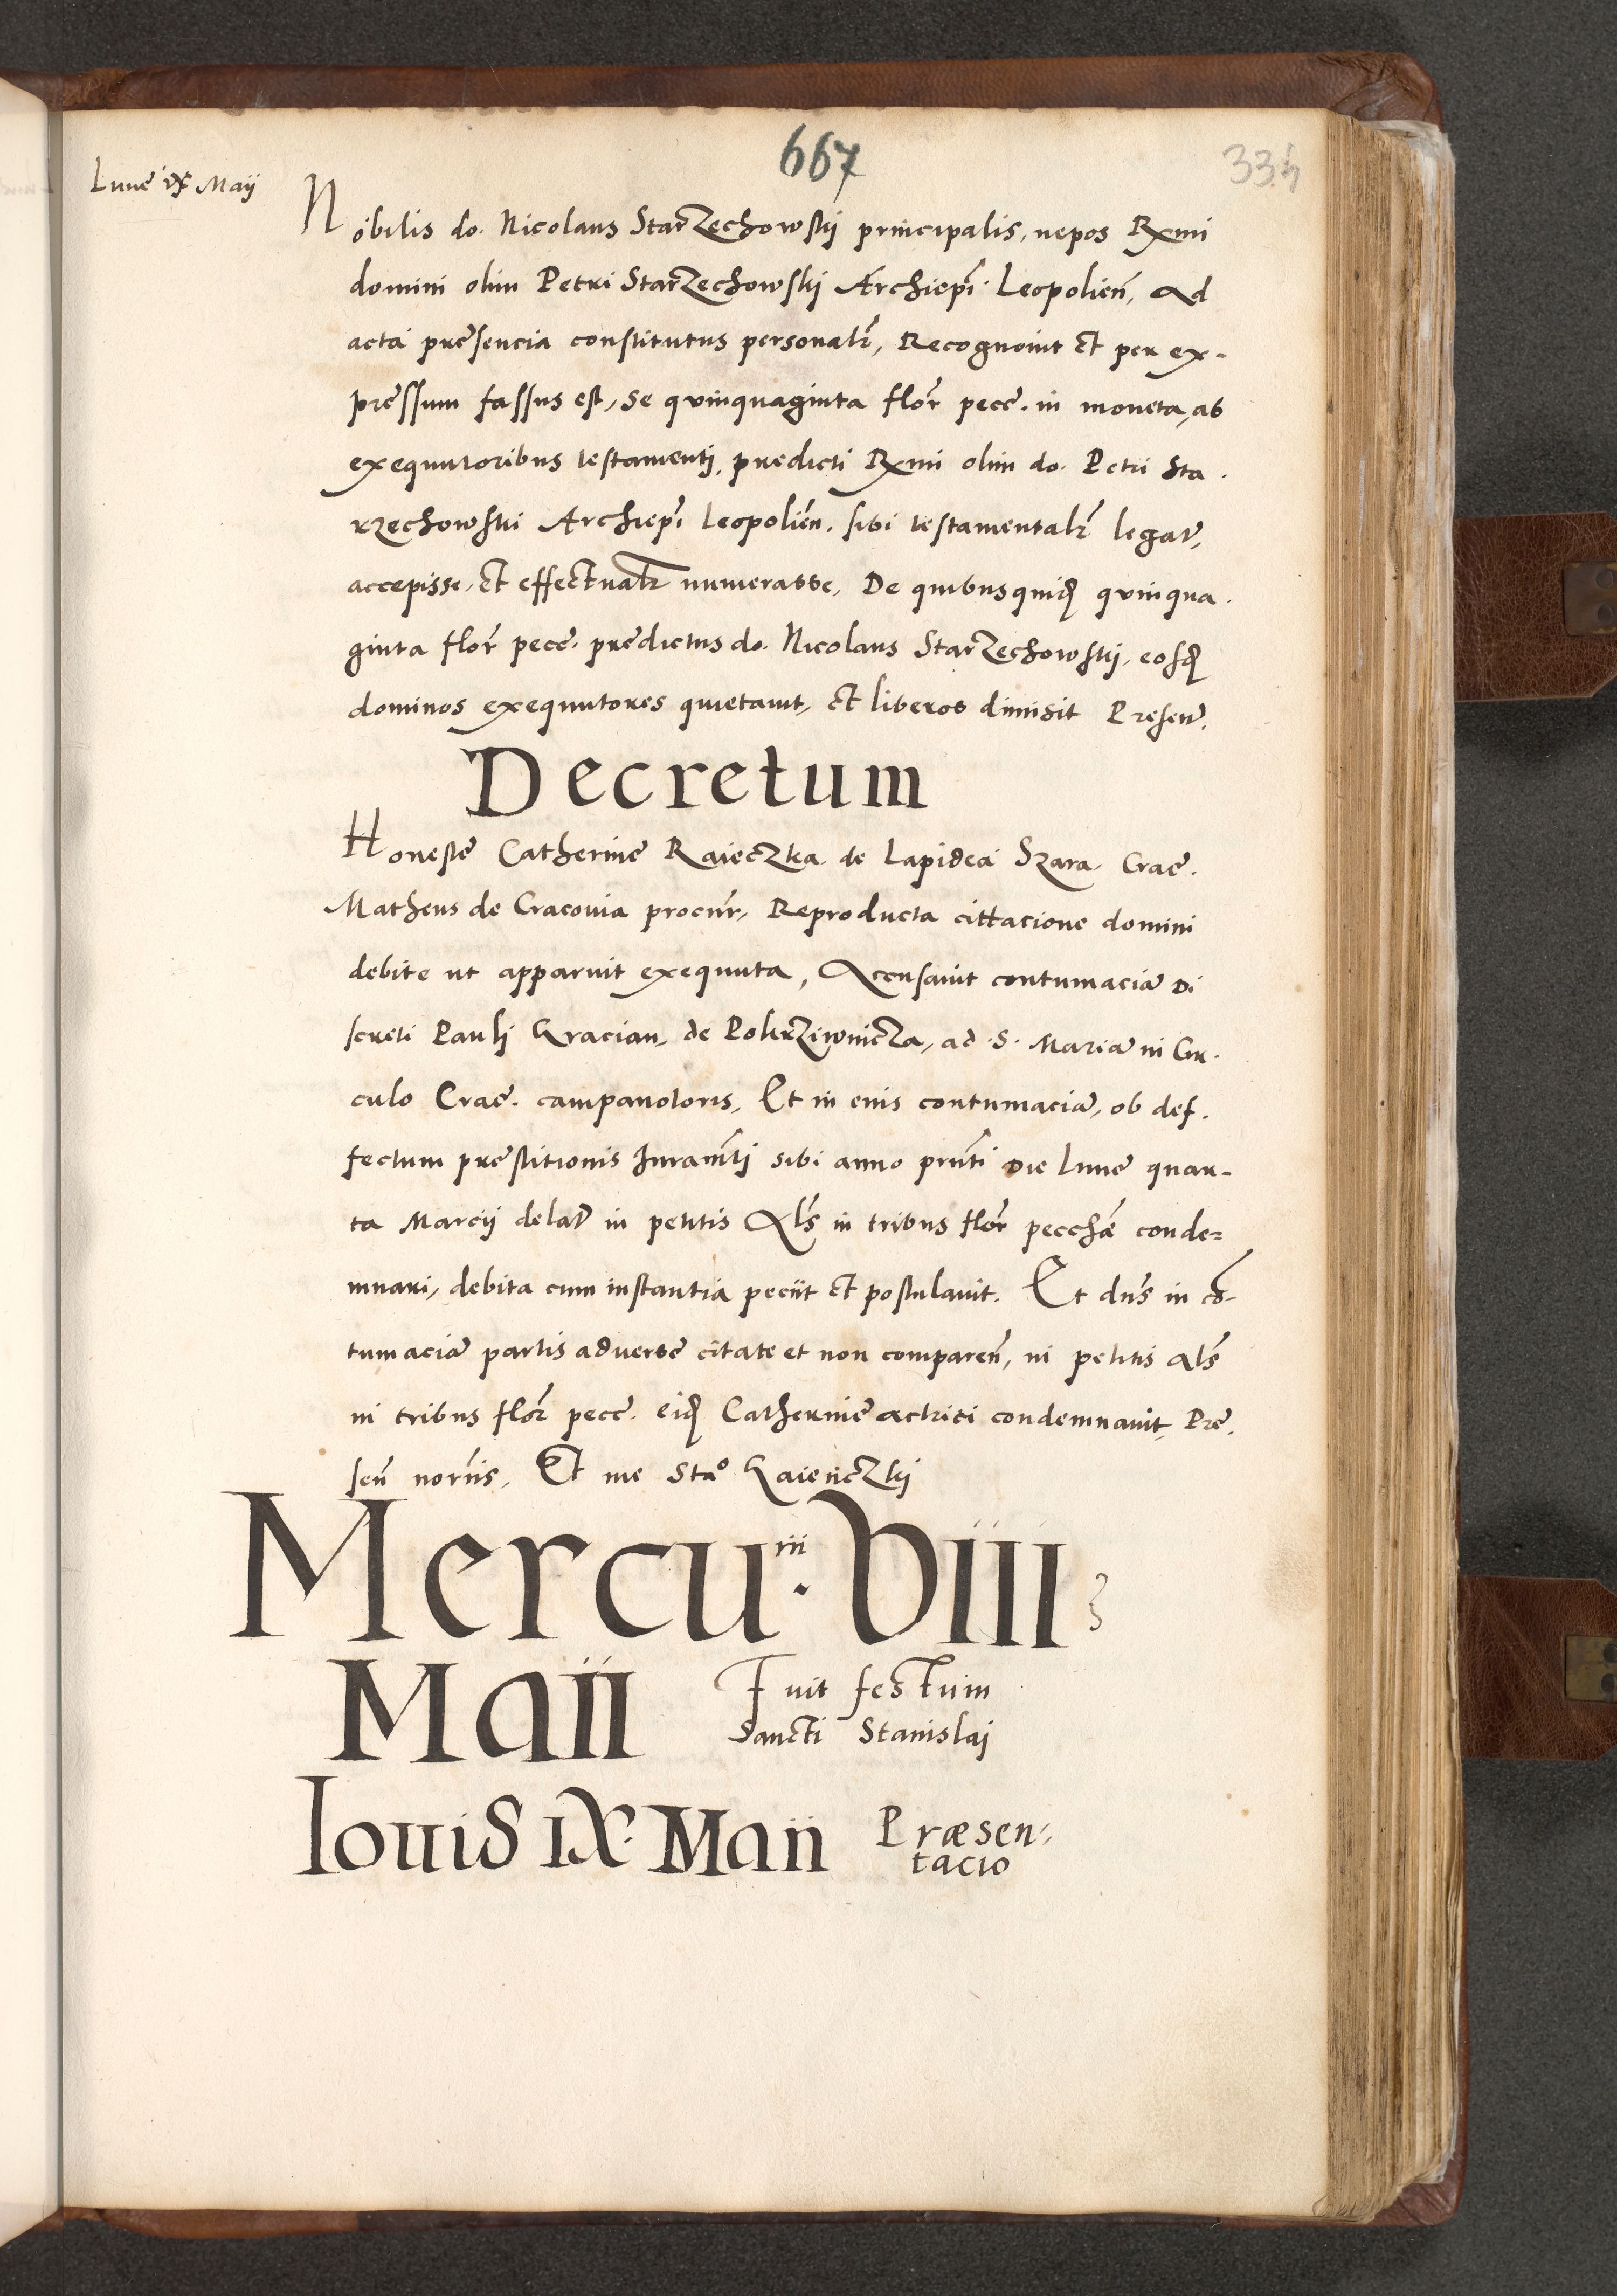 667
334
Lune ix Maij
Nobilis do. Nicolaus Starzechowskij principalis, nepos Rxmi
domini olim Petri Starzechowskij Archiepi Leopolien, Ad
acta presencia constitutus personalr, Recognovit et per ex-
pressum fassus est, se quinquaginta flor pecc. in moneta, ab
exequutoribus testamentj, predicti Rxmi olim do. Petri Sta-
rzechowski Archiepi Leopolien. sibi testamentalr legat,
accepisse, et effectualr numerasse, De quibusquid quinqua-
ginta flor pecc. predictus do. Nicolaus Starzechowskij, eosd
dominos exequutores quietavit, et liberos dimisit Presen.
Decretum
Honeste Catherine Raieczka de Lapidea Szara Crac.
Matheus de Cracovia procur, Reproducta cittacione domini
debite ut apparuit exequuta, Accusavit contumacia Di
screti Paulj Gracian, de Pokrziwnicza, ad S. Maria in Cir-
culo Crac. campanotoris, Et in eius contumacia, ob def-
fectum prestitionis Juramtj sibi anno prnti Die Lune quar-
ta Marcij delat in petitis Als in tribus flor pecchae conde=
mnari, debita cum instantia peciit et postulavit. Et dns in co-
tumacia partis adverse citate et non comparen, in petitis als
in tribus flor pecc. eid Catherine actrici condemnavit, Pre-
sen nornis, Et me Stao Gaieniczkij
Mercu.rii Viii
Maii Fuit festum
Sancti Stanislaj
Iouis ix Maii Præsen-
tacio